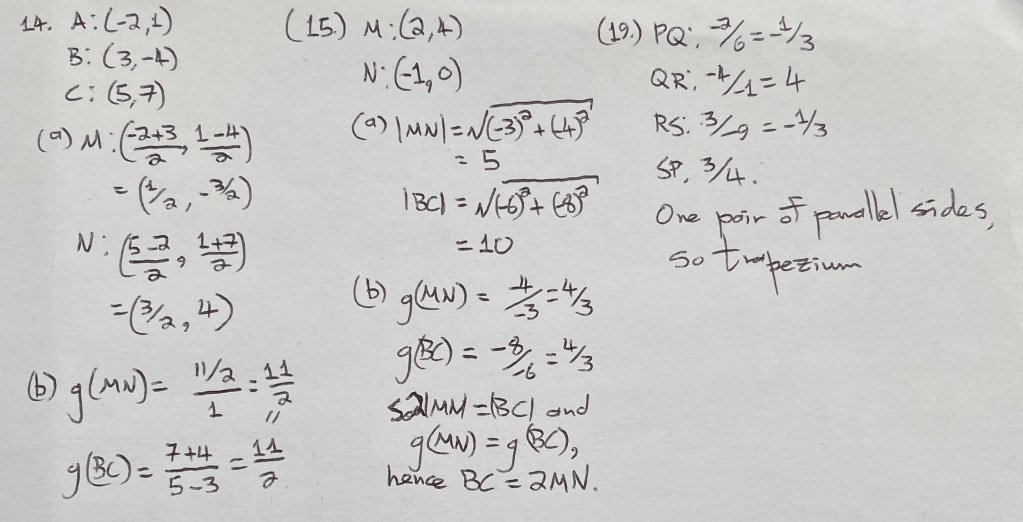 14. A:(-2,1)
B: (3,-4)
C: (5,7)
(a) M:((-2+3)/2, (1-4)/2)
= (1/2, -3/2)
N: ((5-2)/2, (1+7)/2)
=(3/2, 4)
(b) g(MN)= (11/2)/1 = 11/2
"
g(BC)= (7+4)/(5-3) = 11/2
(15.) M:(2,4)
N:(-1,0)
(a) |MN|=√((-3)²+(-4)²)
= 5
|BC| = √((-6)²+(-8)²)
= 10
(b) g(MN) = 4/-3 = 4/3
g(BC) = -8/-6 = 4/3
So 2|MM| = |BC| and
g(MN) = g(BC),
hence BC = 2MN.
(19.) PQ: -2/6 = -1/3
QR: -4/-1 = 4
RS: 3/-9 = -1/3
SP, 3/4.
One pair of parallel sides,
so trapezium